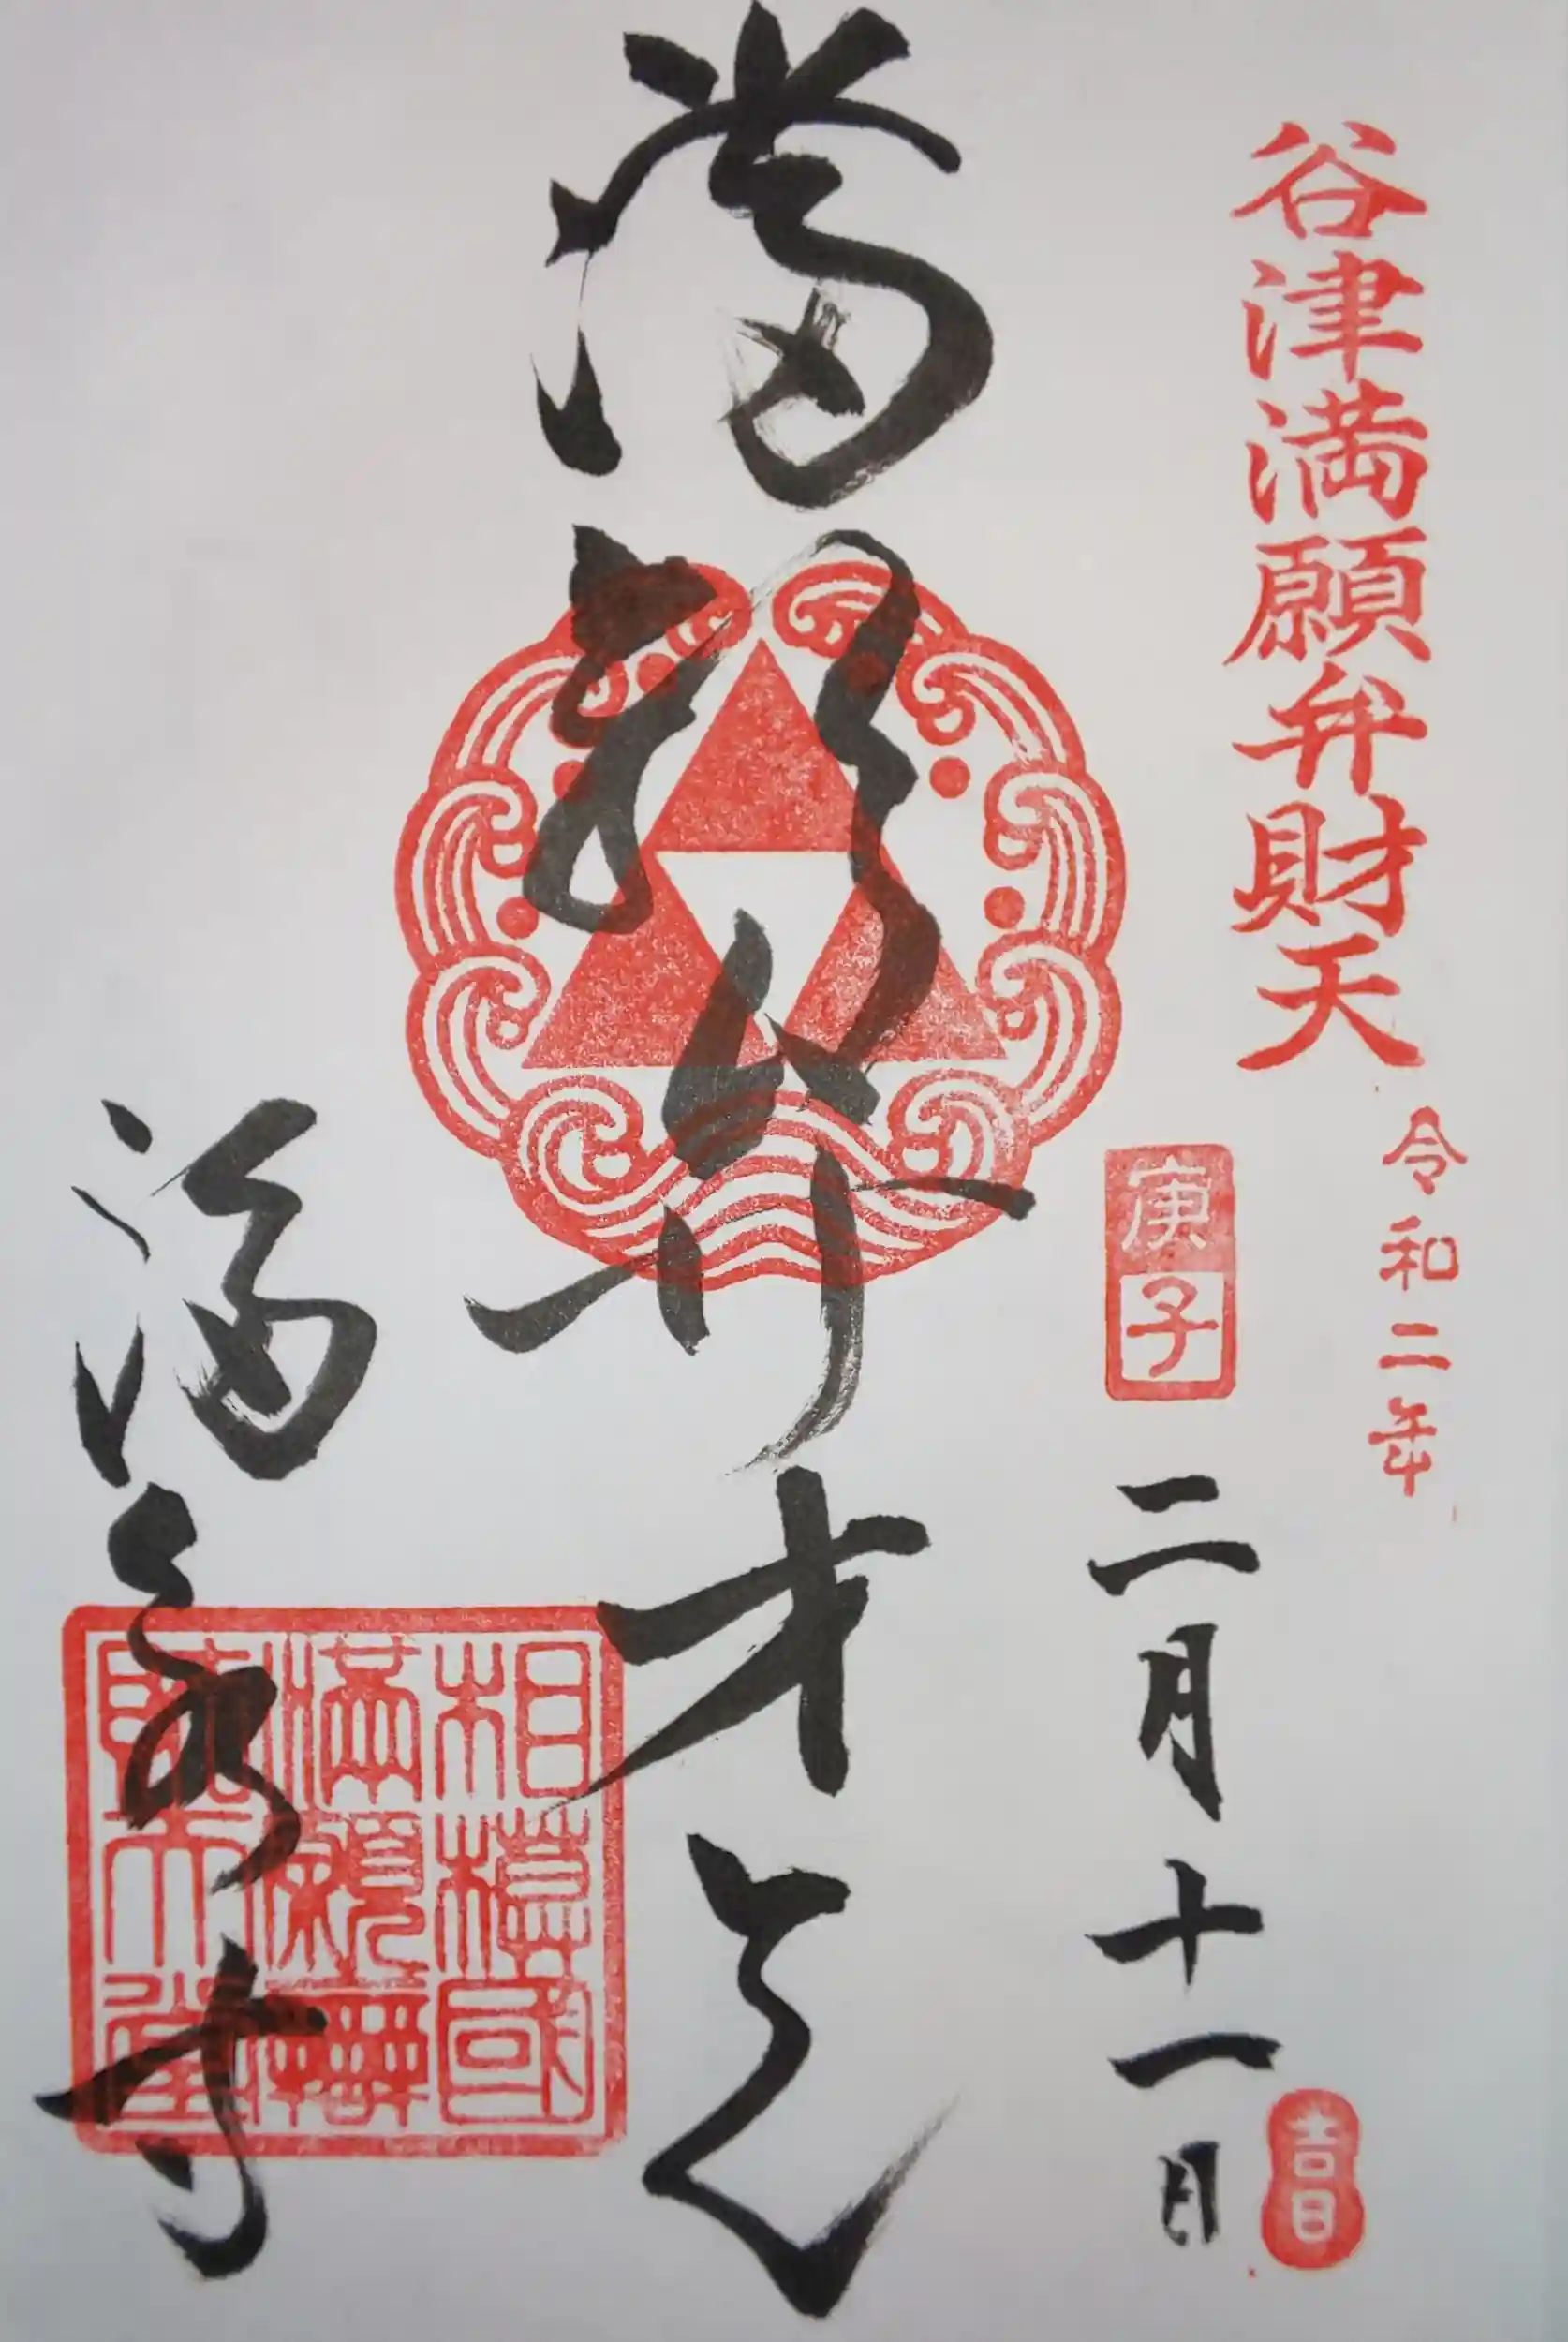 谷津満願弁財天
令和二年
庚子
二月十一日
吉日
満願弁才天
相模國
満願
財天堂